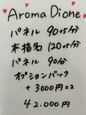 Aroma Dione
パネル 90+5/分
本指名 120+5/分
パネル 90/分
オプションパック
+3000円×2
42.000円